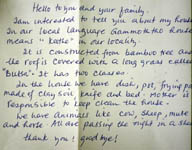 Hello to you and your family.
I am interested to tell you about my house
In our local language Gammotetho house
means "ketho" in our locality.
It is constructed from bamboo tree and
the roof is covered with a long grass called
"Butsa". It has two classes.
In the house we have dish, pot, frying pan
made of clay soil, knife and bed. Mother is
responsible to keep clean the house.
We have animals like cow, sheep, mute
and horse. All are passing the night in a same
thank you! goodbye!